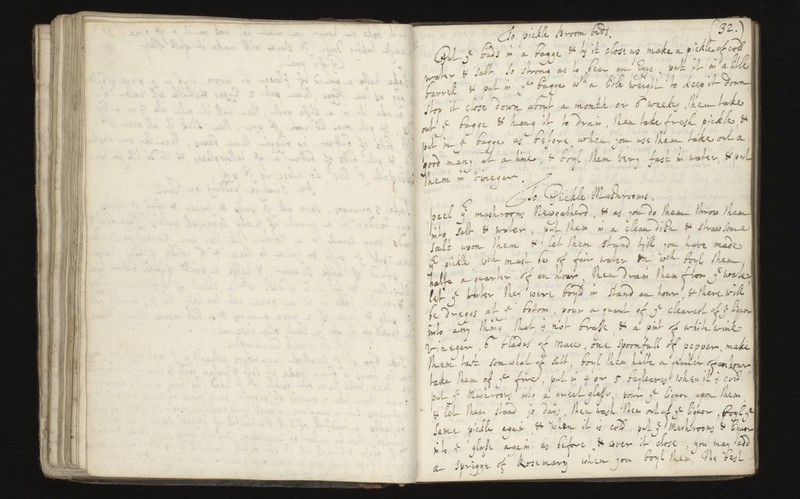 To pickle Broom buds. (32.)
Put ye buds in a bagge & ty it close up make a pickle of cold
water & salt so strong as to bear an Egge, putt it in a litle
barrell & put in ye bagge wth a litle weight to keep it down
stop it close down about a month or 6 weeks, then take
out ye bagge & hang it to drain, then take fresh pickle &
put in ye bagge as before, when you use them take out a
good many at a time, & boyl them very fast in water, & put
them in vinegar.
To Pickle Mushrooms.
peel ye mushrooms Newgatherd, & as you do them throw them
into salt & water, put them in a clean dish & straw some
salt upon them & let them stand till you have made
ye pickle wch must be of fair water in wch boyl them
halfe a quarter of an hour, then drain them from ye water
let ye water they were boyld in stand an hour, & there will
be dregs at ye botom, pour a quart of ye clearest of ye liquor
into any thing that is not brasse & a pint of white wine
vinegar, 6 blades of Mace, one spoonfull of pepper, make
them tast somwhat of salt, boyl them halfe a quarter of an hour
take them of ye fire, put in 4 or 5 bayleaves, when it is cold
put ye Musheroms into a great glasse, pour ye liquor upon them
& let them stand 10 days, then wash them out of ye liquor, boyl ye
same pickle again & when it is cold put ye mushrooms & liquor
into ye glasse again as before & cover it close, you may add
a sprigge of Rosemary when you boyl them. The best